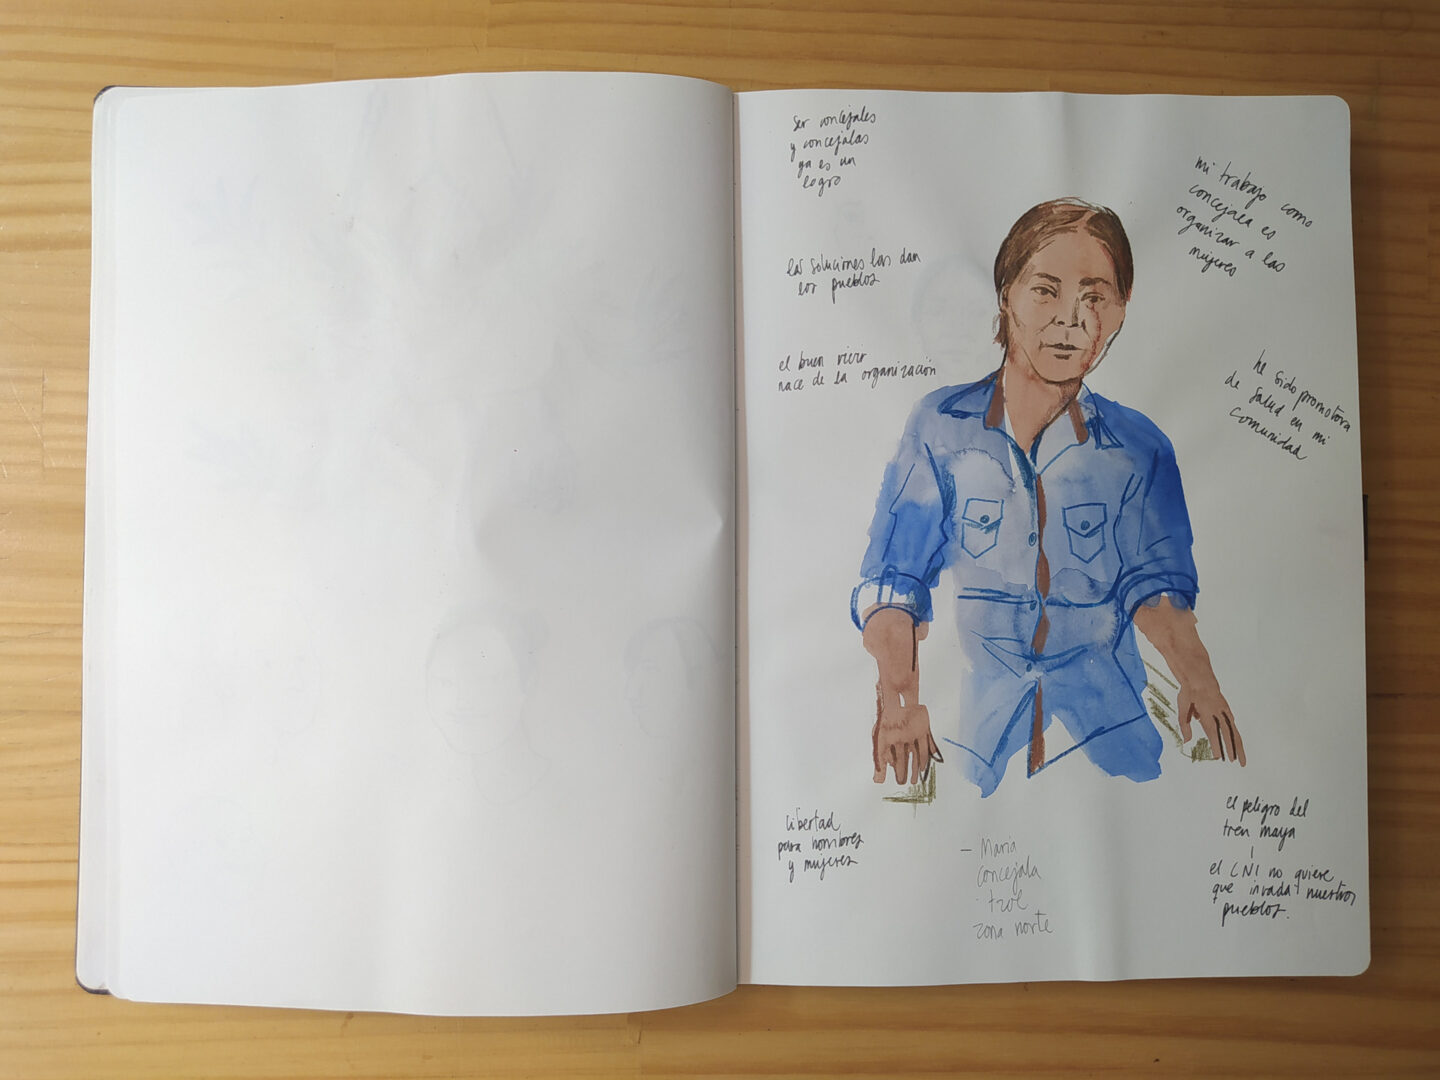 ser concejales
y concejalas
ya es un
logro
las soluciones las dan
los pueblos
el buen vivir
nace de la organización
libertad
para hombres
y mujeres
— María
concejala
tzol
zona norte
mi trabajo como
concejala es
organizar a las
mujeres
he sido promotora
de salud en mi
comunidad
el peligro del
tren maya
el CNI no quiere
que invada nuestros
pueblos.